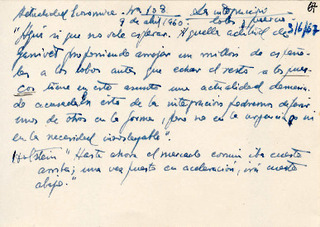 Actualidad Económica. Nº 108 La integración
9 de abril 1960. lobos y puercos
3/6/62
"Aquí sí que no vale esperar. Aquella actitud de
Ganivet proponiendo arrojar un millón de españo-
les a los lobos antes que echar el resto a los puer-
cos tiene en este asunto una actualidad
de acuerdo esto de la integración podremos
unos de otros en la forma, pero no en la urgencia ni
en la necesidad insoslayable".
Hallstein "Hasta ahora el mercado común iba cuesta
arriba; una vez puesta en aceleración, irá cuesta
abajo."